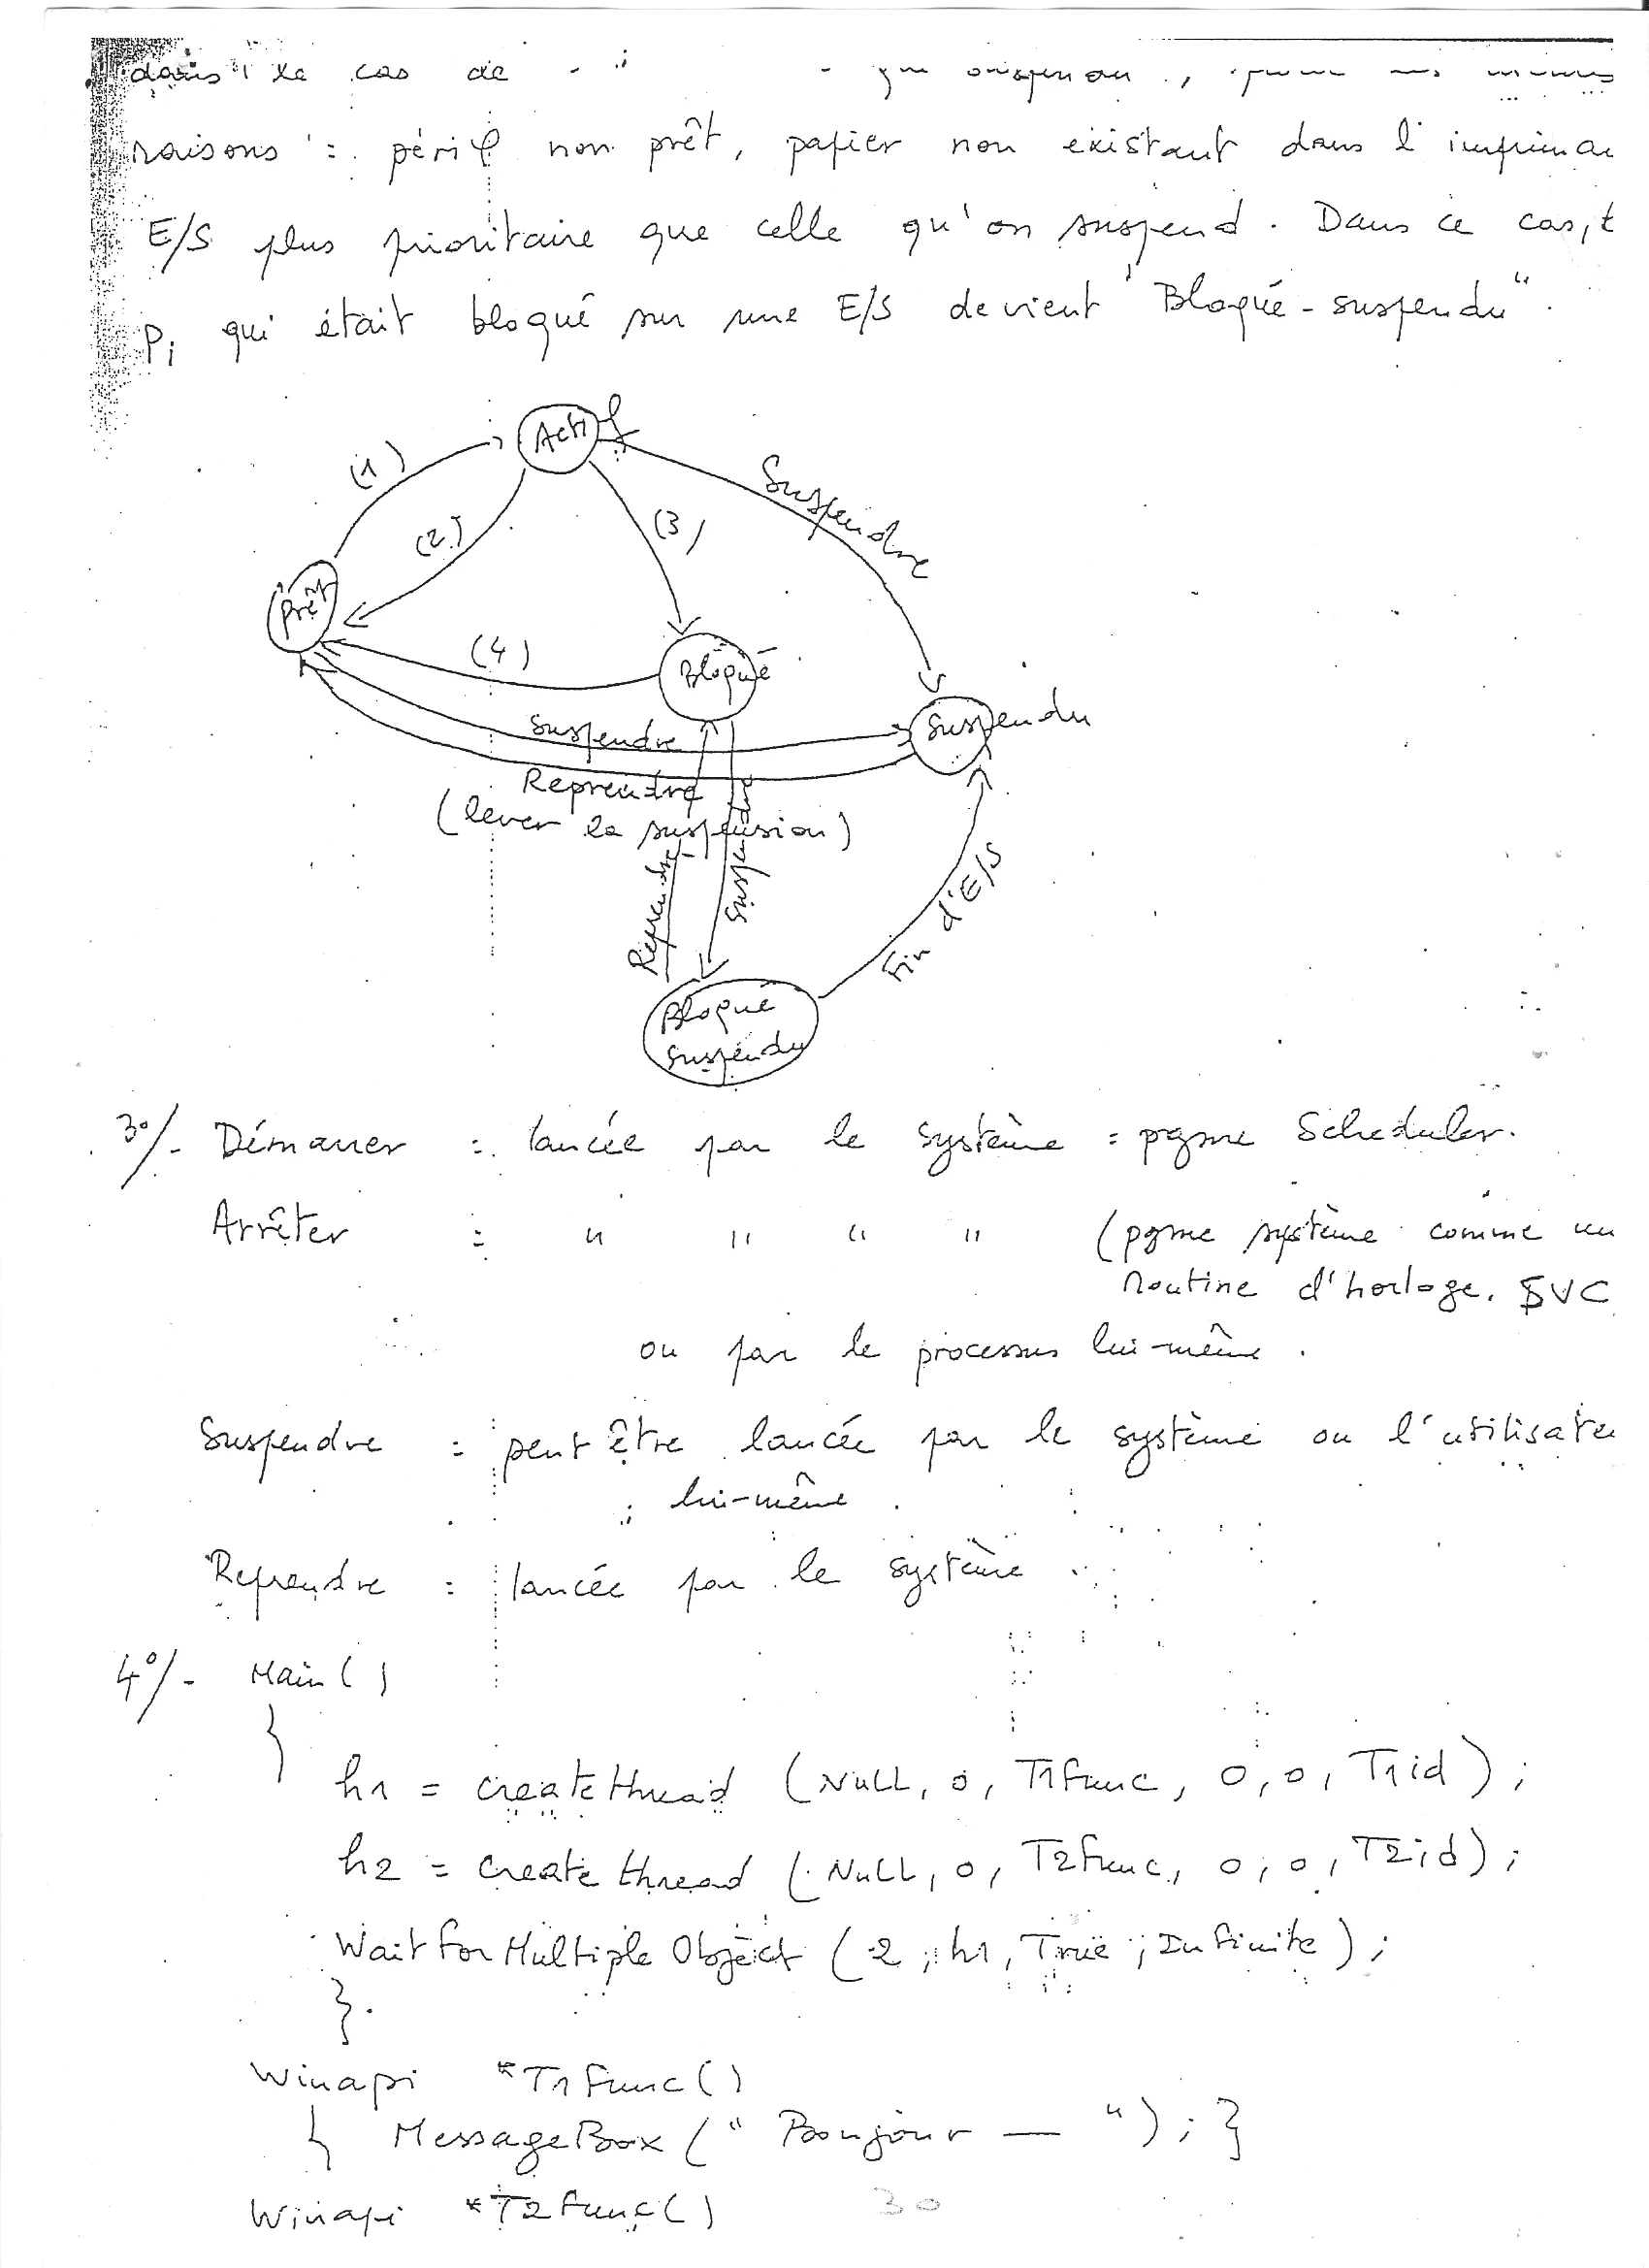 dans le cas de
raisons : périφ non prêt, papier non existant dans l'imprima
E/S plus prioritaire que celle qu'on suspend. Dans ce cas, t
Pi qui était bloqué sur une E/S devient "Bloqué-suspendu".
Actif
(1)
Suspendre
(2)
(3)
Prêt
(4)
Bloqué
Suspendu
Suspendre
Reprendre
(lever la suspension)
Reprendre
Suspendre
Fin d'E/S
Bloqué
Suspendu
3°/- Démarrer : lancée par le système = pgme Scheduler.
Arrêter : " " " " (pgme système comme un
routine d'horloge. SVC
ou par le processus lui-même.
Suspendre : peut être lancée par le système ou l'utilisate
lui-même.
Reprendre : lancée par le système
4°/- Main()
{
h1 = createthread (Null, 0, T1func, 0, 0, T1id);
h2 = create thread (Null, 0, T2func, 0, 0, T2id);
Wait for Multiple Object (2, h1, True, Infinite);
}.
Winapi *T1func()
{ MessageBox ("Bonjour — "); }
Winapi *T2func()
30